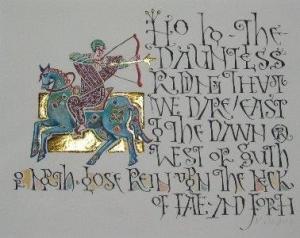 HO
DAUNTLESS
RIDING
WE DARE! EAST
TO THE DAWN OR
WEST OR SOUTH
OR NORTH. LOOSE REIN UPON THE NECK
OF FATE: AND FORTH